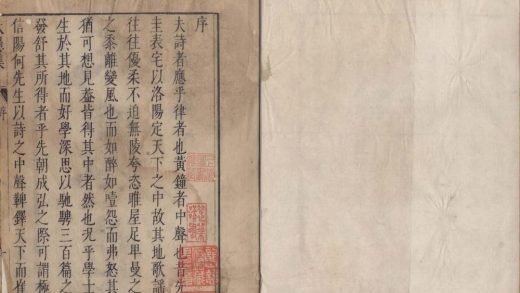 序
夫詩者應乎律者也黃鐘者中聲也昔先
圭表宅以洛陽定天下之中故其地歌謡
往往優柔不迫無陵夸恣睢屋足卑曼之
之黍離變風也而如醉如噎怨而弗怒其
猶可想見蓋皆得其中者然也况乎學士
生於其地而好學深思以馳騁三百篇之
發舒其所得者乎先朝成弘之際可謂極
信陽何先生以詩之中聲鞞鐸天下而
集 序